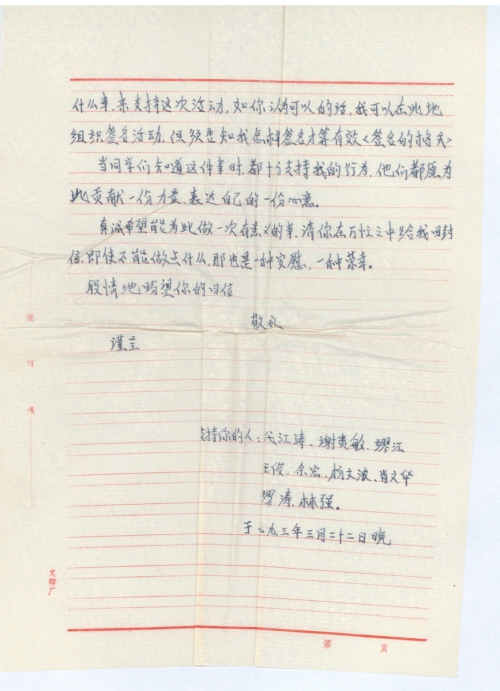 什么事,来支持这次活动,如你认为可以的话,我可以在此地
组织签名活动,但须告知我怎样签名才算有效<签名的格式>
当同学们知道这件事时,都十分支持我的行为,他们都愿为
此贡献一份力量,表达自己的一份心意。
真诚希望能为此做一次有意义的事,请你在万忙之中给我回封
信,即使不能做点什么,那也是一种安慰,一种荣幸。
殷情地盼望你的回信
敬礼
谨呈
支持你的人:江涛、谢贵敏、缪江
王俊、余宏、杨文波、肖文华
罗涛、林强。
于一九九三年三月二十二日晚
文印厂
第 页